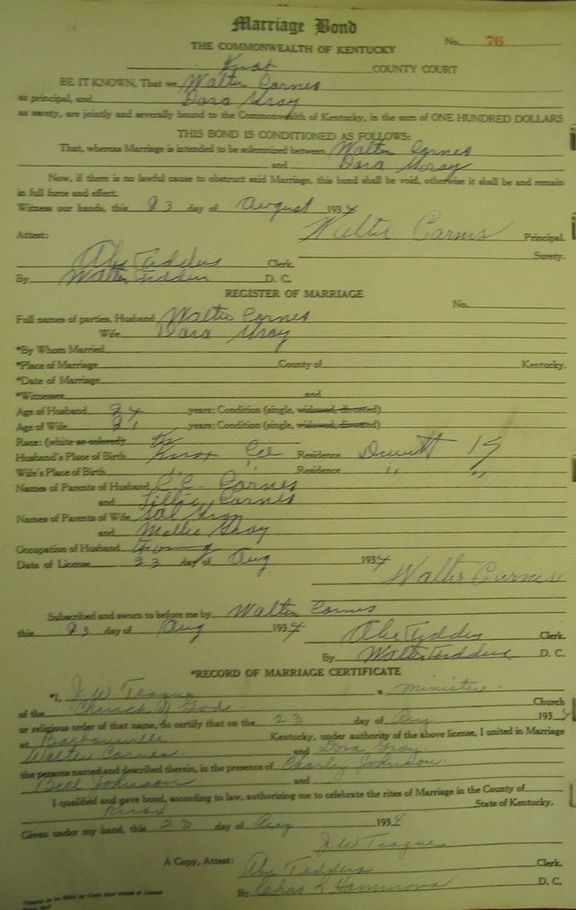 Marriage Bond
No. 76
THE COMMONWEALTH OF KENTUCKY
Knox COUNTY COURT
BE IT KNOWN, That we Walter Carnes
as principal, and Dora Gray
as surety, are jointly and severally bound to the Commonwealth of Kentucky, in the sum of ONE HUNDRED DOLLARS
THIS BOND IS CONDITIONED AS FOLLOWS:
That, whereas Marriage is intended to be solemnized between Walter Carnes
and Dora Gray
Now, if there is no lawful cause to obstruct said Marriage, this bond shall be void, otherwise it shall be and remain
in full force and effect.
Witness our hands, this 23 day of August 1934
Walter Carnes Principal.
Attest:
Surety.
Abe Tedders Clerk.
By Walter Tedders D. C.
REGISTER OF MARRIAGE
No.
Full names of parties, Husband Walter Carnes
Wife Dora Gray
*By Whom Married
*Place of Marriage County of Kentucky.
*Date of Marriage
*Witnesses and
Age of Husband 24 years; Condition (single, widowed, divorced)
Age of Wife 21 years; Condition (single, widowed, divorced)
Race: (white or colored)
Husband's Place of Birth Knox Co Residence Dewitt Ky
Wife's Place of Birth " " Residence " "
Names of Parents of Husband C. C. Carnes
and Tillie Carnes
Names of Parents of Wife Gray
and Mollie Gray
Occupation of Husband
Date of License 23 day of Aug 1934
Walter Carnes
Subscribed and sworn to before me by Walter Carnes
this 23 day of Aug 1934
Abe Tedders Clerk.
By Walter Tedders D. C.
*RECORD OF MARRIAGE CERTIFICATE
*I, J. W. Teague a Minister
of the Church of God Church
or religious order of that name, do certify that on the 23 day of Aug 1934
at Barbourville Kentucky, under authority of the above license, I united in Marriage
Walter Carnes and Dora Gray
the persons named and described therein, in the presence of Charley Johnson
Bill Johnson and
I qualified and gave bond, according to law, authorizing me to celebrate the rites of Marriage in the County of
Knox State of Kentucky.
Given under my hand, this 23 day of Aug 1934
J. W. Teague
A Copy, Attest: Abe Tedders Clerk.
By Chas R Hammons D. C.